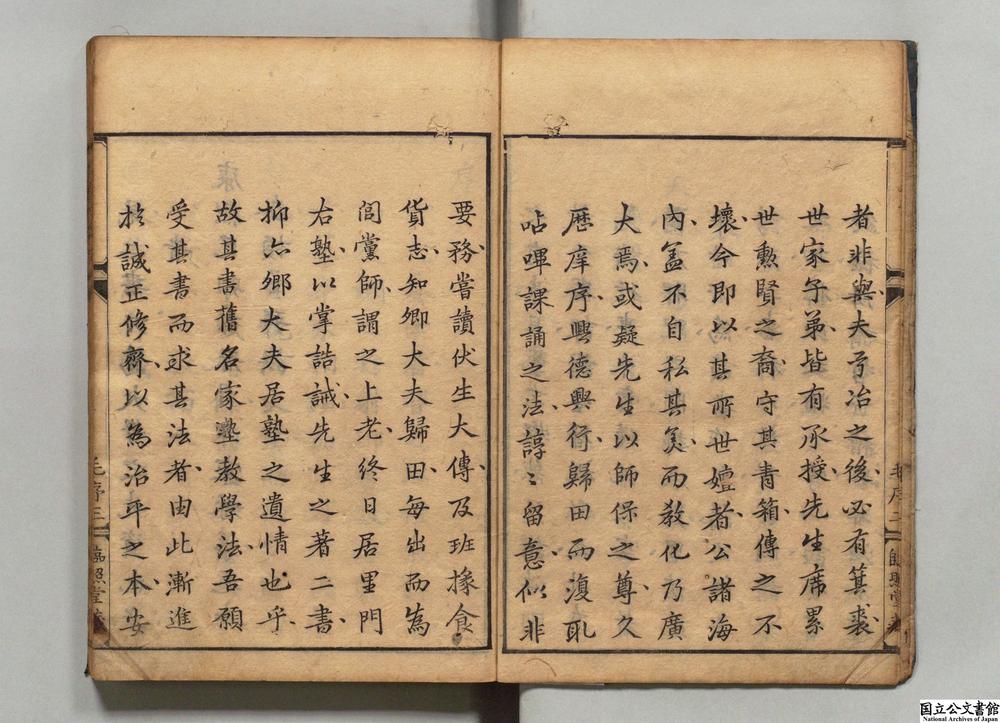 者非與夫弓冶之後必有箕裘
世家子弟皆有承授先生席累
世勲賢之裔守其青箱傳之不
壞今即以其所世嬗者公諸海
內盖不自私其美而敎化乃廣
大焉或疑先生以師保之尊久
歴庠序興德興行歸田而復取
呫嗶課誦之法諄〻留意似非
要務嘗讀伏生大傳及班掾食
貨志知卿大夫歸田每出而為
閭黨師謂之上老終日居里門
右塾以掌誥誡先生之著二書
抑亦鄉大夫居塾之遺情也乎
故其書舊名家塾敎學法吾願
受其書而求其法者由此漸進
於誠正修齊以為治平之本安
毛序二
毛序三
国立公文書館
National Archives of Japan